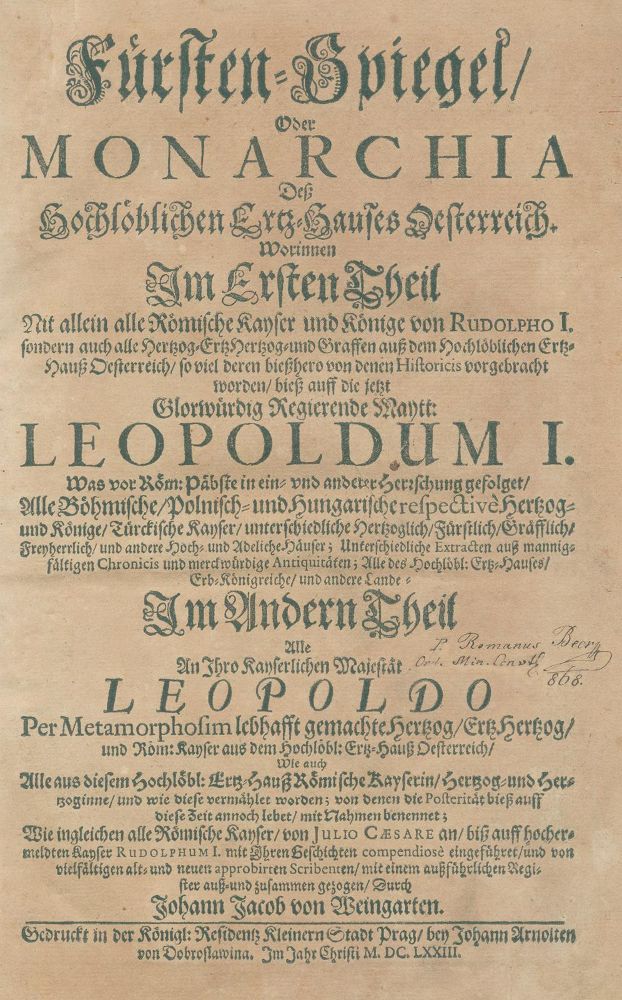 Fürsten-Spiegel/
Oder
MONARCHIA
Deß
Hochlöblichen Ertz-Hauses Oesterreich.
Worinnen
Im Ersten Theil
Nit allein alle Römische Kayser und Könige von RUDOLPHO I.
sondern auch alle Hertzog-ErtzHertzog-und Graffen auß dem Hochlöblichen Ertz-
Hauß Oesterreich/ so viel deren bießhero von denen Historicis vorgebracht
worden/ bieß auff die jetzt
Glorwürdig Regierende Maytt:
LEOPOLDUM I.
Was vor Röm: Päbste in ein- vnd anderer Herrschung gefolget/
Alle Böhmische/Polnisch-und Hungarische respectivè Hertzog-
und Könige/ Türckische Kayser/ unterschiedliche Hertzoglich/Fürstlich/Gräfflich/
Freyherrlich/ und andere Hoch- und Adeliche-Häuser; Unterschiedliche Extracten auß mannig-
fältigen Chronicis und merckwürdige Antiquitäten; Alle des Hochlöbl: Ertz-Hauses/
Erb-Königreiche/ und andere Lande -
Im Andern Theil
Alle
An Ihro Kayserlichen Majestät
P. Romanus Beer
Ord. Min. Conv.
868.
LEOPOLDO
Per Metamorphosim lebhafft gemachte Hertzog/ErtzHertzog/
und Röm: Kayser aus dem Hochlöbl: Ertz-Hauß Oesterreich/
Wie auch
Alle aus diesem Hochlöbl: Ertz-Hauß Römische Kayserin/ Hertzog-und Her-
tzoginne/ und wie diese vermählet worden; von denen die Posterität bieß auff
diese Zeit annoch lebet/ mit Nahmen benennet;
Wie ingleichen alle Römische Kayser/ von JULIO CÆSARE an/ biß auff hocher-
meldten Kayser RUDOLPHUM I. mit Ihren Geschichten compendiosè eingeführet/und von
vielfältigen alt-und neuen approbirten Scribenten/ mit einem außführlichen Regi-
ster auß-und zusammen gezogen/ Durch
Johann Jacob von Weingarten.
Gedruckt in der Königl: Residentz Kleinern Stadt Prag/ bey Johann Arnolten
von Dobroslawina. Im Jahr Christi M. DC. LXXIII.